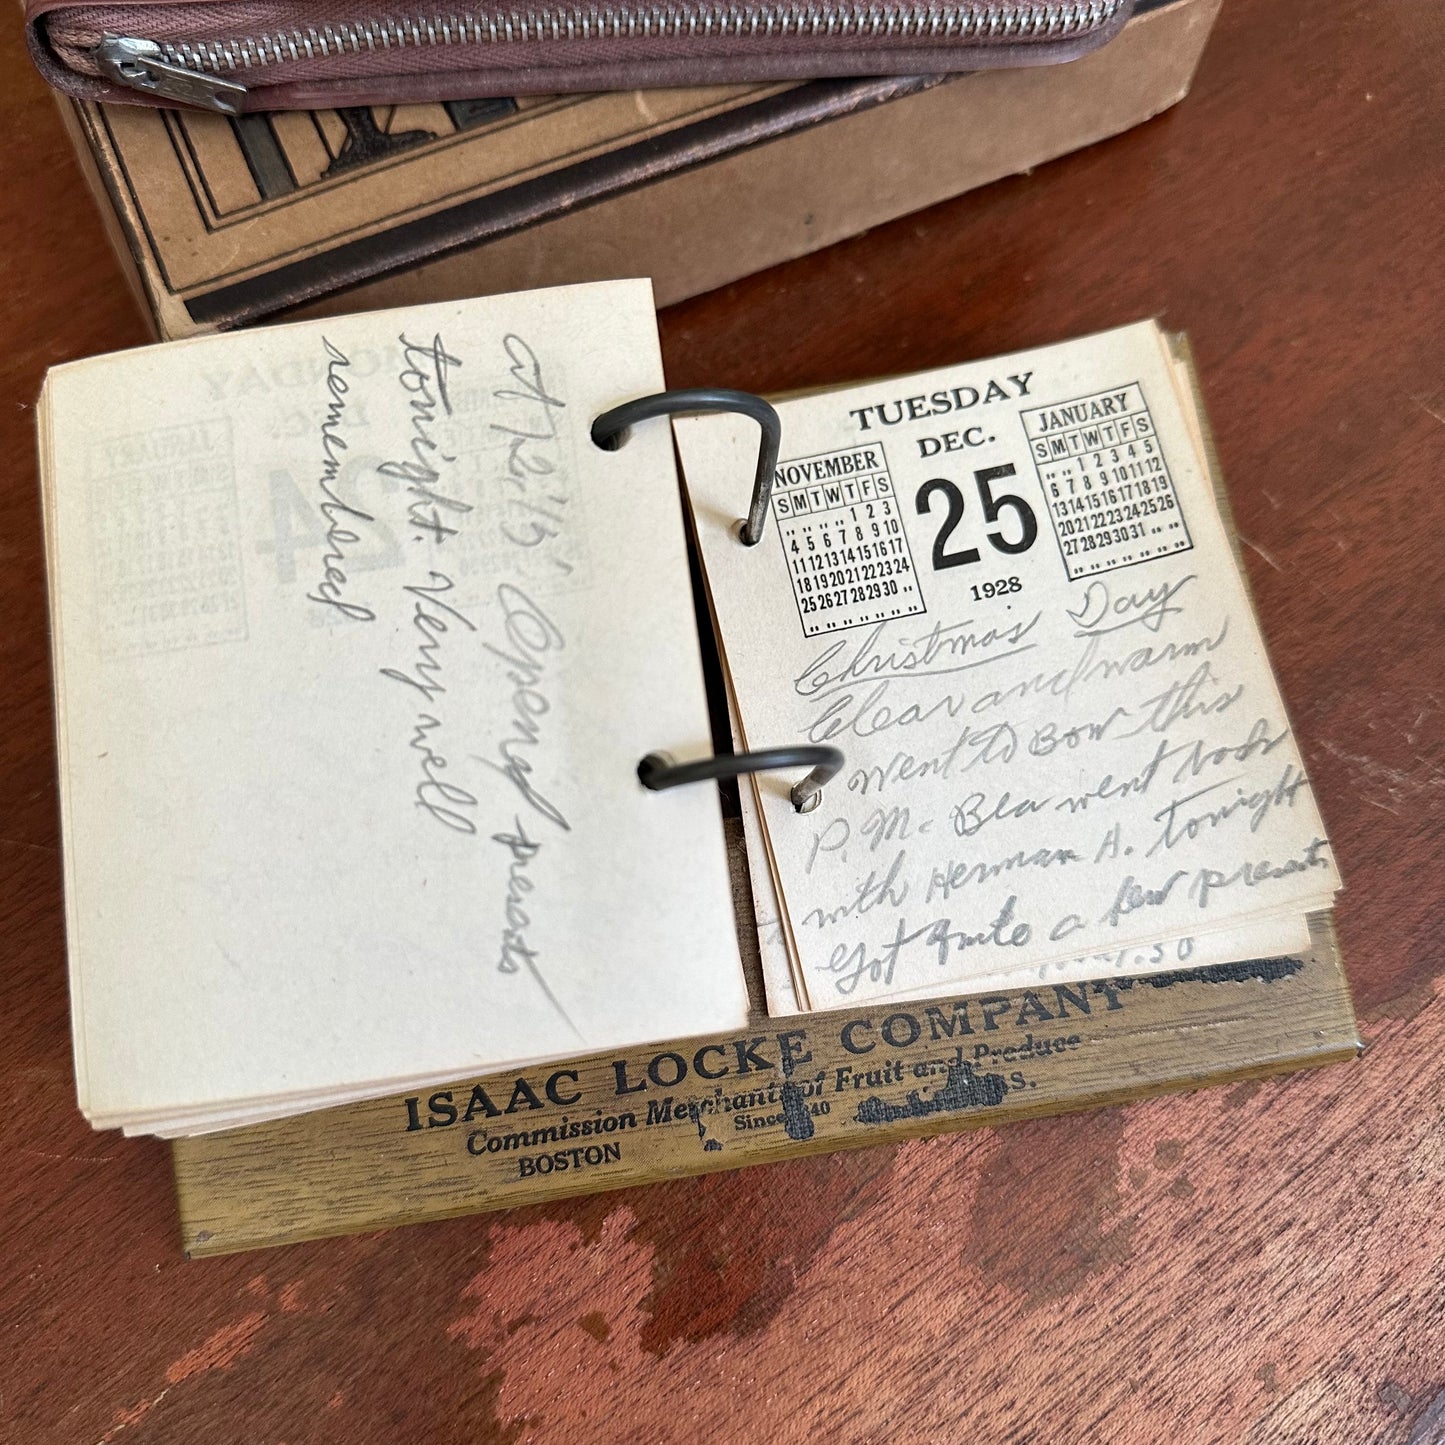 at Opened presents
tonight. Very well
remembered
TUESDAY
DEC.
25
1928
NOVEMBER
S M T W T F S
" " " " 1 2 3
4 5 6 7 8 9 10
11 12 13 14 15 16 17
18 19 20 21 22 23 24
25 26 27 28 29 30 "
" " " " " " "
JANUARY
S M T W T F S
" " 1 2 3 4 5
6 7 8 9 10 11 12
13 14 15 16 17 18 19
20 21 22 23 24 25 26
27 28 29 30 31 " "
" " " " " " "
Christmas Day
Clear and warm
went to Bow this
P. M. Bea went back
with Herman H. tonight
Got quite a few presents
ISAAC LOCKE COMPANY
Commission Merchants of Fruit and Produce
Since
BOSTON